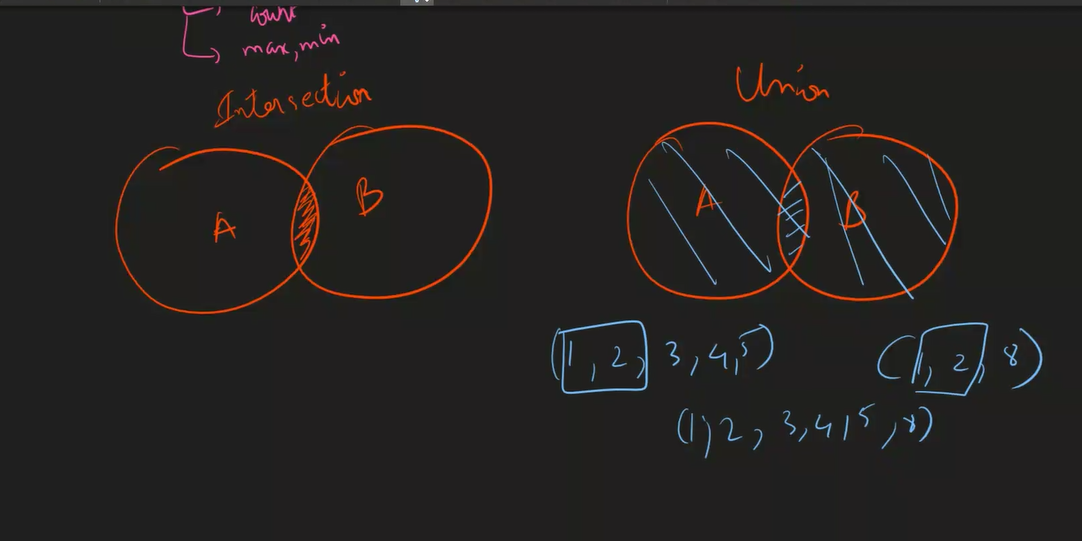 count
max, min
Intersection
Union
A
B
A
B
(1, 2, 3, 4, 5)
(1, 2, 8)
(1, 2, 3, 4, 5, 8)